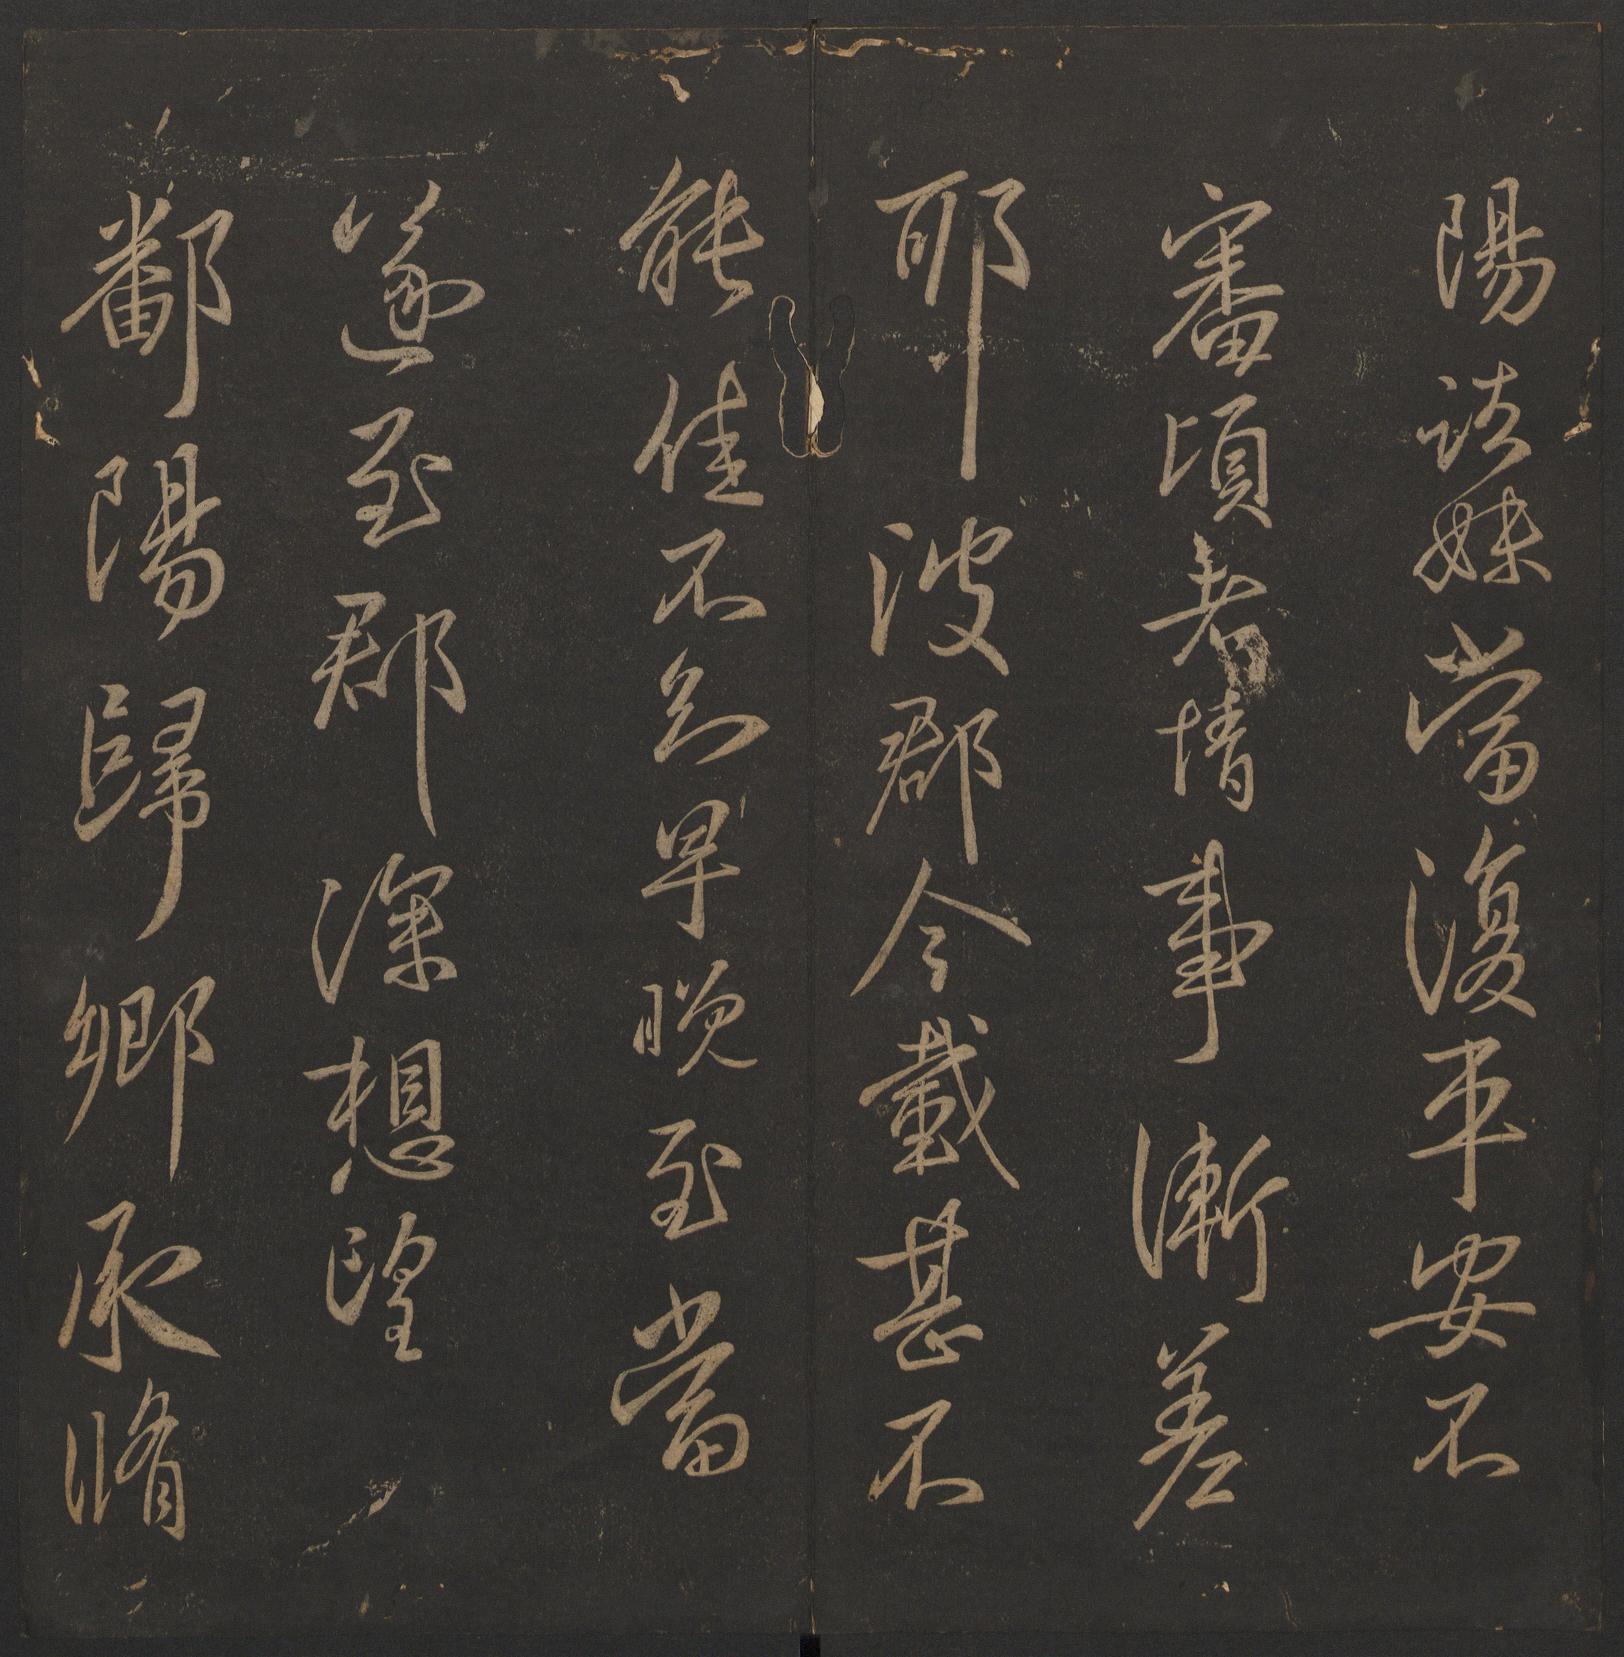 陽諸妹當復平安不
審頃者情事漸差
耶彼郡今載甚不
能佳不知早晚至當
遂至郡深想望
鄱陽歸鄉承脩